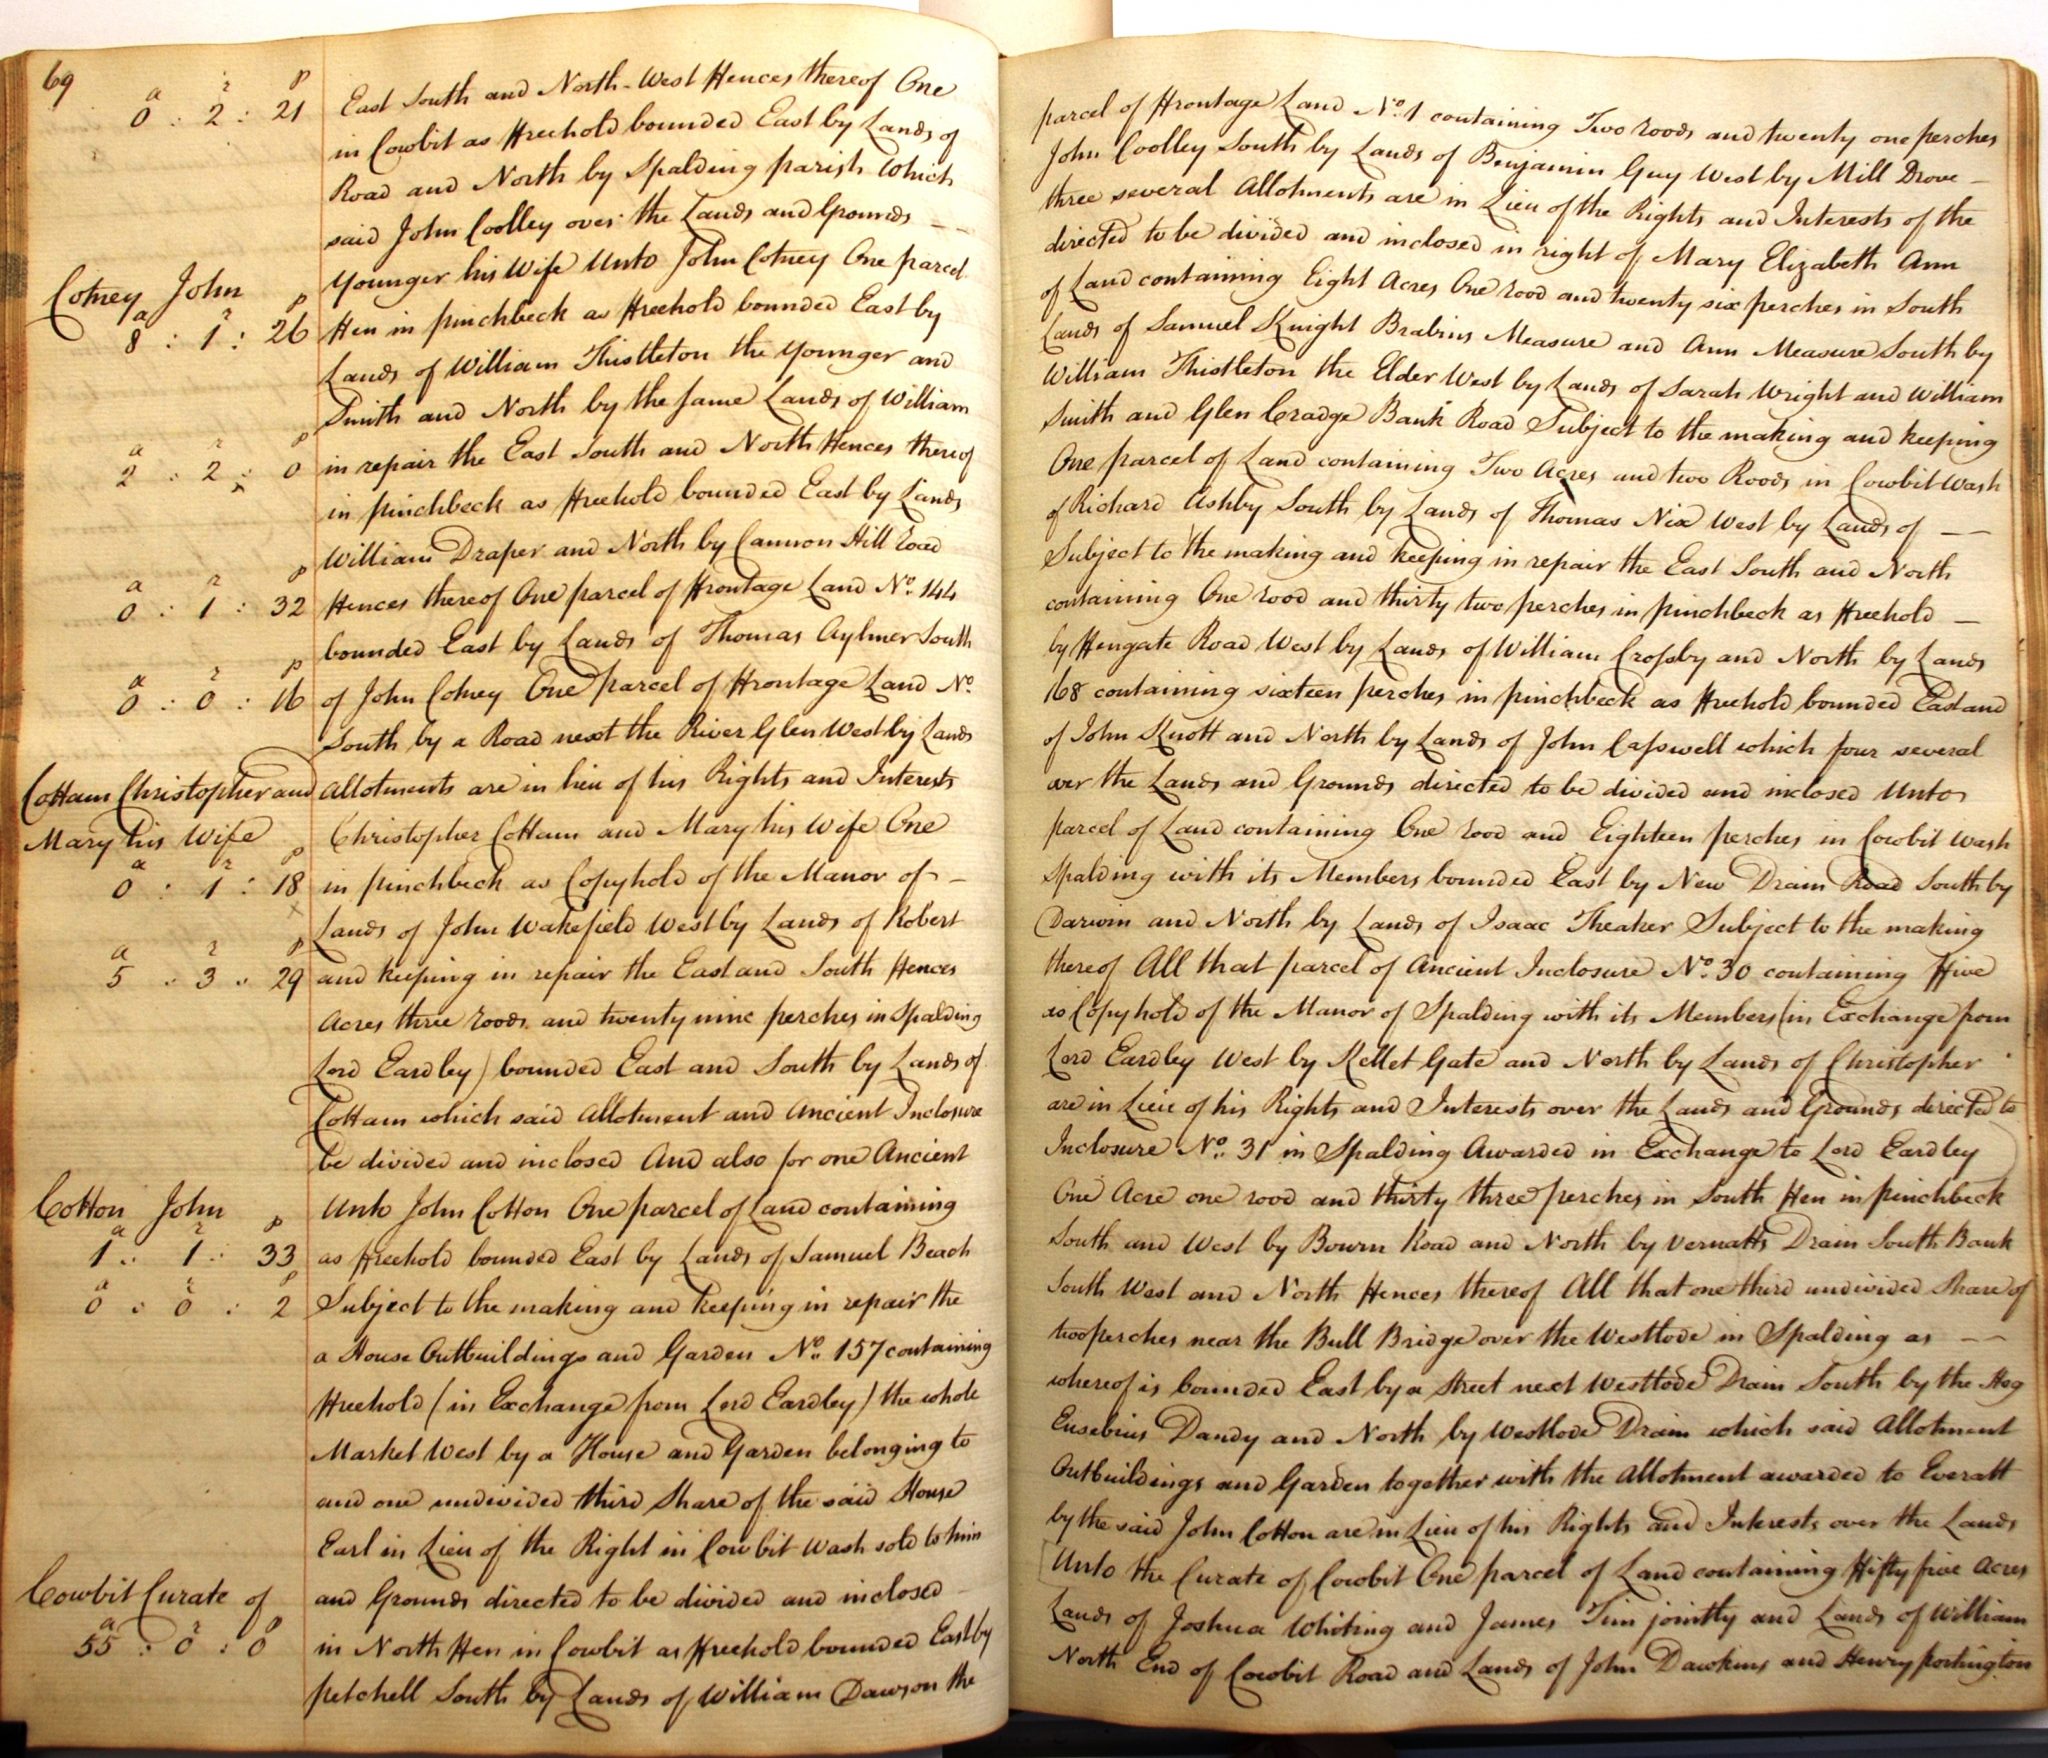 69
a r p
0 : 2 : 21
East South and North-West Fences thereof One parcel of Frontage Land No. 1 containing Two roods and twenty one perches
in Cowbit as Freehold bounded East by Lands of John Coolley South by Lands of Benjamin Guy West by Mill Drove —
Road and North by Spalding parish Which three several Allotments are in Lieu of the Rights and Interests of the
said John Coolley over the Lands and Grounds — — directed to be divided and inclosed in right of Mary Elizabeth Ann
Cotney John
Younger his Wife Unto John Cotney One parcel of Land containing Eight Acres One rood and twenty six perches in South
a r p
8 : 1 : 26
Fen in pinchbeck as Freehold bounded East by Lands of Samuel Knight Brabins Measure and Ann Measure South by
Lands of William Thistleton the Younger and William Thistleton the Elder West by Lands of Sarah Wright and William
Smith and North by the same Lands of William Smith and Glen Cradge Bank Road Subject to the making and keeping
a r p
2 : 2 : 0
in repair the East South and North Fences thereof One parcel of Land containing Two Acres and two Roods in Cowbit Wash
in pinchbeck as Freehold bounded East by Lands of Richard Ashby South by Lands of Thomas Nix West by Lands of — —
William Draper and North by Cannon Hill road Subject to the making and keeping in repair the East South and North
a r p
0 : 1 : 32
Fences thereof One parcel of Frontage Land No. 144 containing One rood and thirty two perches in pinchbeck as Freehold —
bounded East by Lands of Thomas Aylmer South by Fengate Road West by Lands of William Crossby and North by Lands
a r p
0 : 0 : 16
of John Cotney One parcel of Frontage Land No. 168 containing sixteen perches in pinchbeck as Freehold bounded East and
South by a Road next the River Glen West by Lands of John Knott and North by Lands of John Casswell which four several
Cottam Christopher and
Allotments are in lieu of his Rights and Interests over the Lands and Grounds directed to be divided and inclosed Unto
Mary his Wife
Christopher Cottam and Mary his Wife One parcel of Land containing One rood and Eighteen perches in Cowbit Wash
a r p
0 : 1 : 18
in pinchbeck as Copyhold of the Manor of — Spalding with its Members bounded East by New Drain Road South by
Lands of John Wakefield West by Lands of Robert Darwin and North by Lands of Isaac Theaker Subject to the making
a r p
5 : 3 : 29
and keeping in repair the East and South Fences thereof All that parcel of Ancient Inclosure No. 30 containing Five
Acres three roods and twenty nine perches in Spalding as Copyhold of the Manor of Spalding with its Members (in Exchange from
Lord Eardley) bounded East and South by Lands of Lord Eardley West by Kellet Gate and North by Lands of Christopher
Cottam which said Allotment and Ancient Inclosure are in Lieu of his Rights and Interests over the Lands and Grounds directed to
be divided and inclosed And also for one Ancient Inclosure No. 31 in Spalding Awarded in Exchange to Lord Eardley
Cotton John
Unto John Cotton One parcel of Land containing One Acre one rood and thirty three perches in South Fen in pinchbeck
a r p
1 : 1 : 33
as Freehold bounded East by Lands of Samuel Beach South and West by Bourn Road and North by Vernatts Drain South Bank
a r p
0 : 0 : 2
Subject to the making and keeping in repair the South West and North Fences thereof All that one third undivided Share of
a House Outbuildings and Garden No. 157 containing two perches near the Bull Bridge over the Westlode in Spalding as — —
Freehold (in Exchange from Lord Eardley) the whole whereof is bounded East by a Street next Westlode Drain South by the Hog
Market West by a House and Garden belonging to Eusebius Dandy and North by Westlode Drain which said Allotment
and one undivided third Share of the said House Outbuildings and Garden together with the Allotment awarded to Everatt
Earl in Lieu of the Right in Cowbit Wash sold to him by the said John Cotton are in Lieu of his Rights and Interests over the Lands
Cowbit Curate of
and Grounds directed to be divided and inclosed Unto the Curate of Cowbit One parcel of Land containing Fifty five Acres
a r p
55 : 0 : 0
in North Fen in Cowbit as Freehold bounded East by Lands of Joshua Whiting and James Tim jointly and Lands of William
petchell South by Lands of William Dawson the North End of Cowbit Road and Lands of John Dawkins and Henry portington